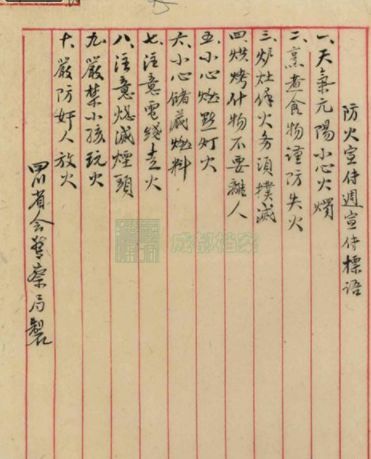 防火宣传週宣传標語
一、天氣亢陽小心火燭
二、烹煮食物謹防失火
三、炉灶餘火务須撲滅
四、烘烤什物不要離人
五、小心燃點灯火
六、小心儲藏燃料
七、注意電綫走火
八、注意熄滅煙頭
九、嚴禁小孩玩火
十、嚴防奸人放火
四川省会警察局製
成都档案